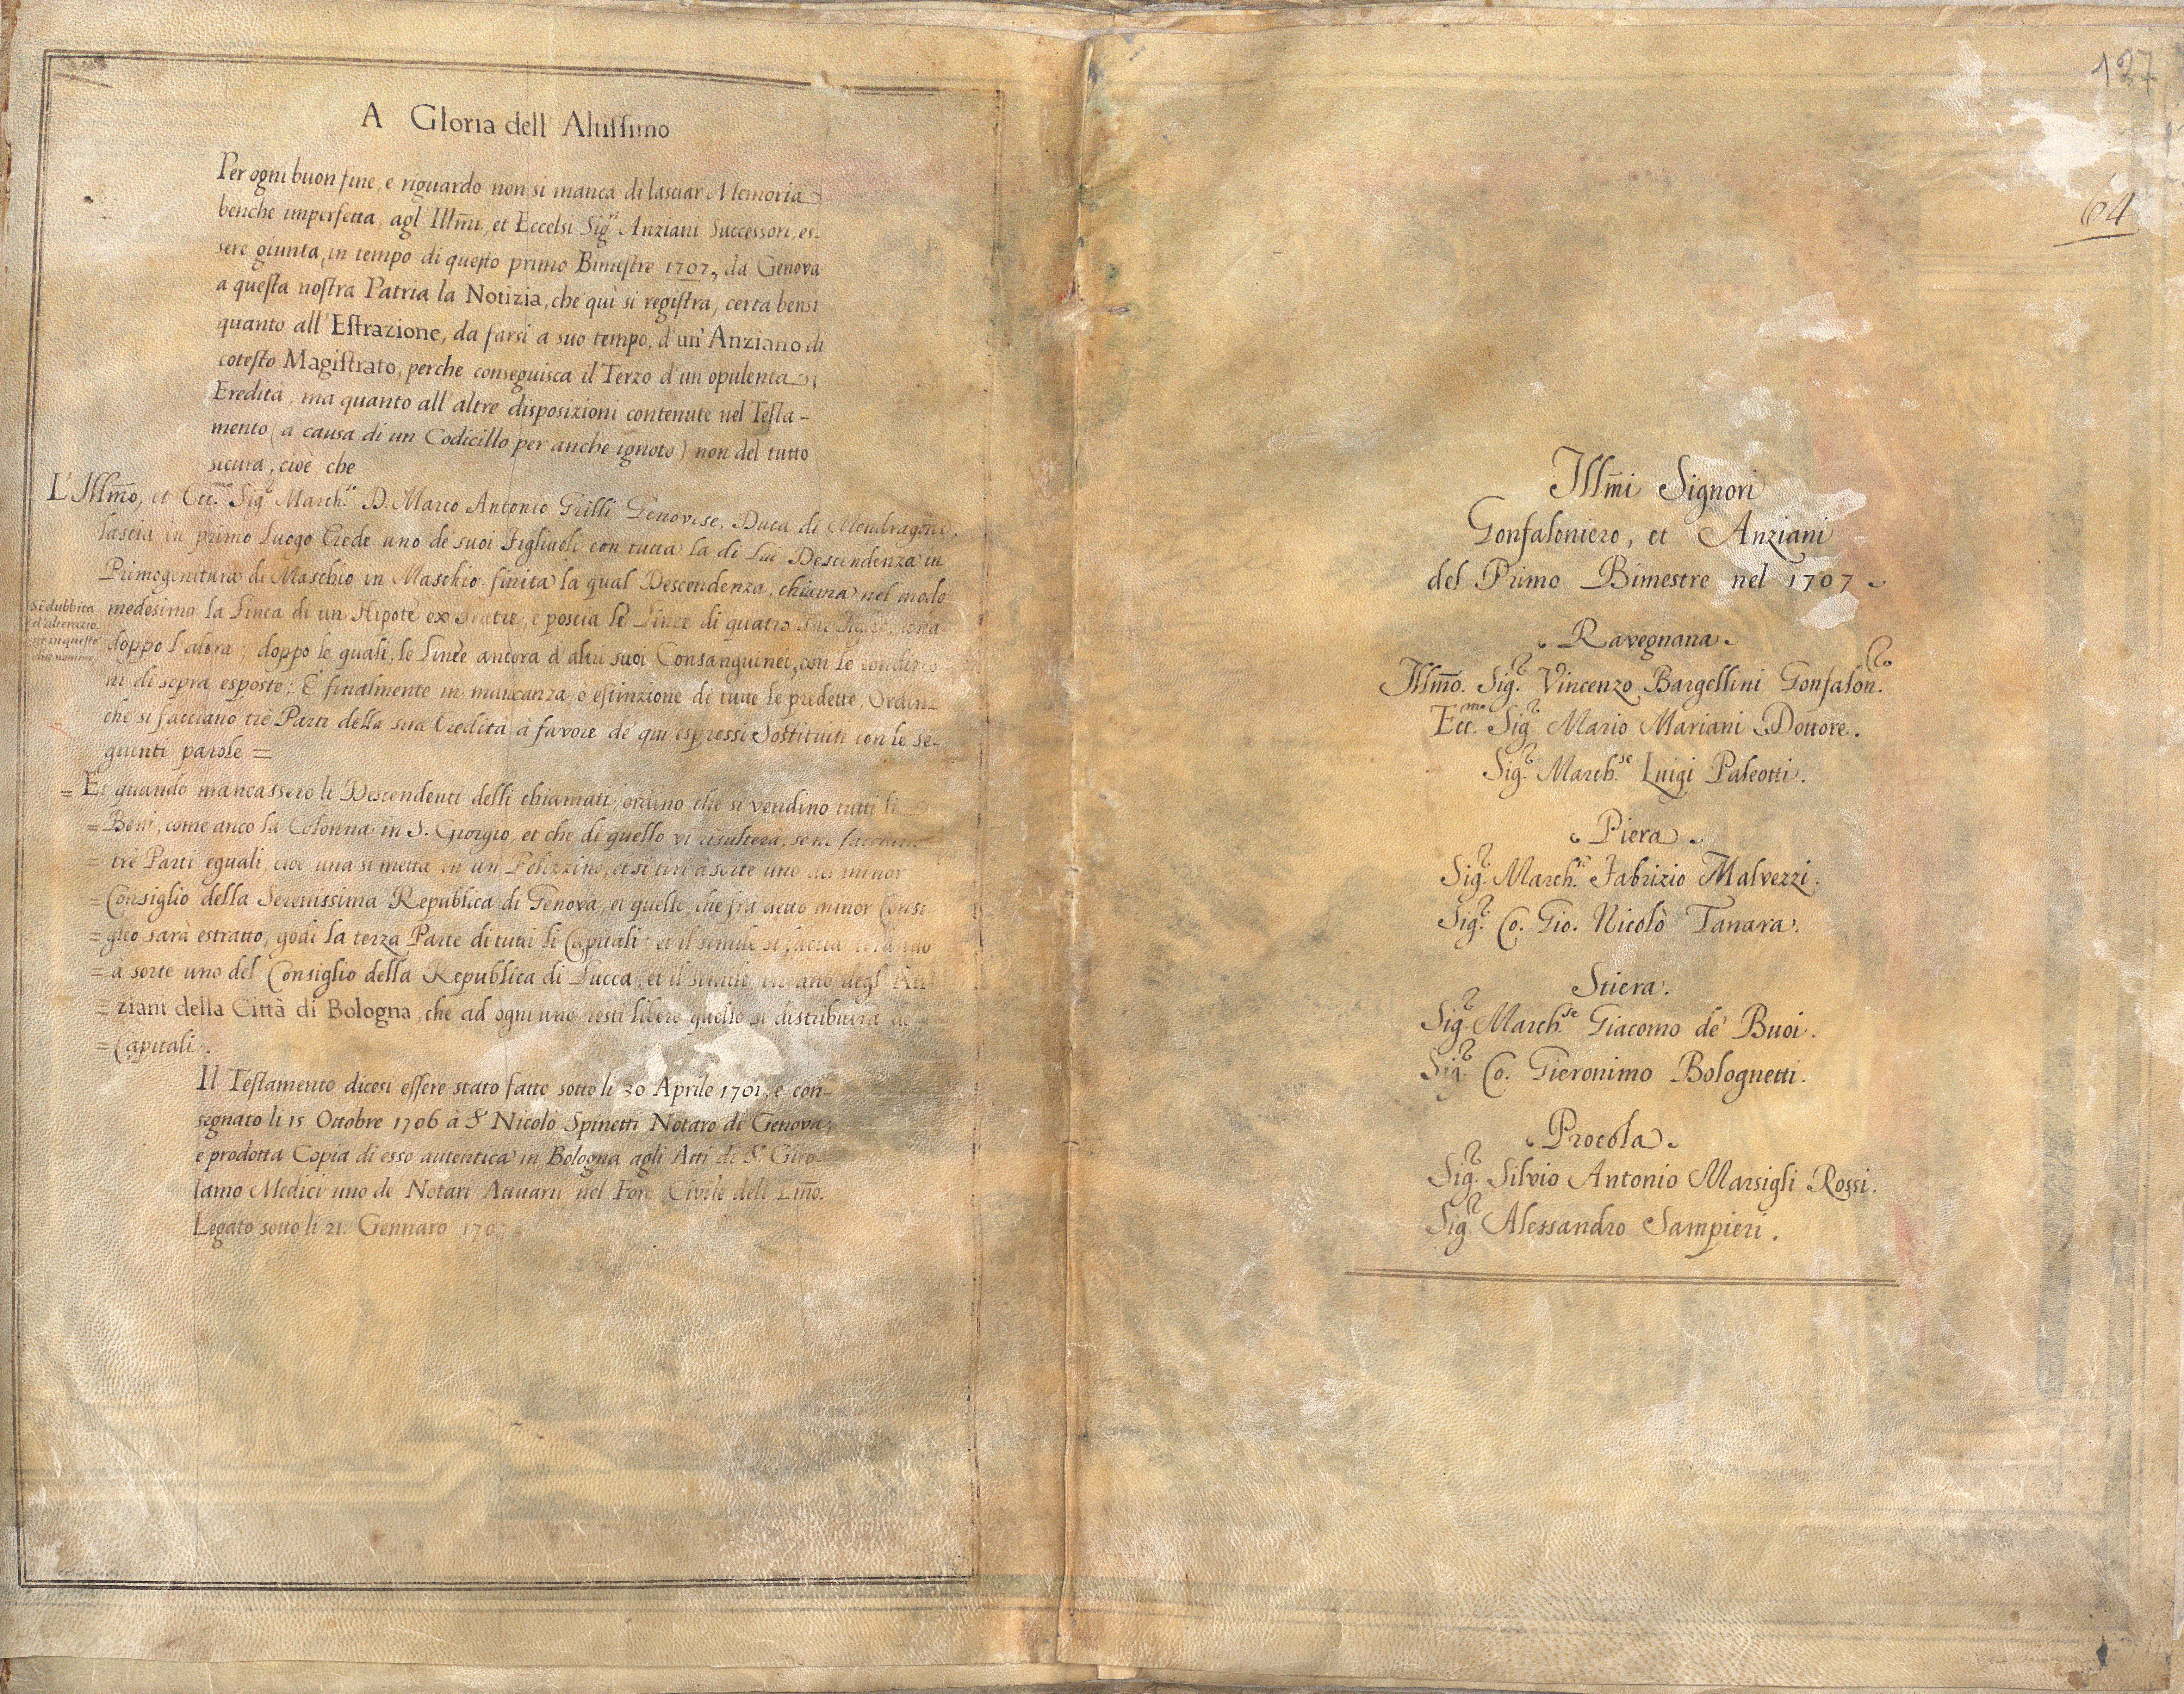 A Gloria dell' Altissimo
Per ogni buon fine, e riguardo non si manca di lasciar Memoria
benche imperfetta, agl' Illm̃i, et Eccelsi Sig.ri Anziani Successori, es-
sere giunta, in tempo di questo primo Bimestre 1707, da Genova
a questa nostra Patria la Notizia, che quì si registra, certa bensi
quanto all' Estrazione, da farsi a suo tempo, d'un' Anziano di
cotesto Magistrato, perche conseguisca il Terzo d'un opulenta
Eredità, ma quanto all' altre disposizioni contenute nel Testa-
mento (a causa di un Codicillo per anche ignoto) non del tutto
sicura, cioè che
L'Illm̃o, et Ecc.mo Sig.r March.se D. Marco Antonio Grilli Genovese, Duca di Mondragone,
lascia in primo luogo Erede uno de suoi Figliuoli con tutta la di Lui Descendenza in
Primogenitura di Maschio in Maschio, finita la qual Descendenza, chiama nel modo
medesimo la Linea di un Nipote ex Fratre, e poscia le Linee di quatro
doppo l'altra; doppo le quali, le Linèe ancora d'altri suoi Consanguinei, con le condizio-
ni di sopra esposte; E finalmente in mancanza, ò estinzione di tutte le predette, Ordina
che si facciano trè Parti della sua Eredità à favore de qui espressi Sostituiti con le se-
guenti parole =
si dubbita
d'alterazio-
ne in queste
due nomine
= Et quando mancassero li Descendenti delli chiamati, ordino che si vendino tutti li
= Beni, come anco la Colonna in S. Giorgio, et che di quello vi risulterà, se ne facciano
= trè Parti eguali, cioè una si metta in un Polizzino, et si tiri à sorte uno del minor
= Consiglio della Serenissima Republica di Genova, et quello, che frà detto minor Consi
= glio sarà estratto, godi la terza Parte di tutti li Capitali; et il simile si faccia tirando
= à sorte uno del Consiglio della Republica di Lucca, et il simile uno degl' An
= ziani della Città di Bologna, che ad ogni uno resti libero quello si distribuirà de
= Capitali.
Il Testamento dicesi essere stato fatto sotto li 30 Aprile 1701, e con-
segnato li 15 Ottobre 1706 à S.r Nicolò Spinetti Notaro di Genova,
e prodotta Copia di esso autentica in Bologna agli Atti di S.r Giro-
lamo Medici uno de Notari Attuarii nel Foro Civile dell' Em̃o.
Legato sotto li 21. Gennaro 1707
127
64
Illm̃i Signori
Gonfaloniero, et Anziani
del Primo Bimestre nel 1707
Ravegnana
Illm̃o. Sig.r Vincenzo Bargellini Gonfalon.ro
Ecc.mo Sig.r Mario Mariani Dottore.
Sig.r March.se Luigi Paleotti.
Piera
Sig.r March.se Fabrizio Malvezzi.
Sig.r Co. Gio. Nicolò Tanara.
Stiera.
Sig.r March.se Giacomo de' Buoi.
Sig.r Co. Gieronimo Bolognetti.
Procola
Sig.r Silvio Antonio Marsigli Rossi.
Sig.r Alessandro Sampieri.